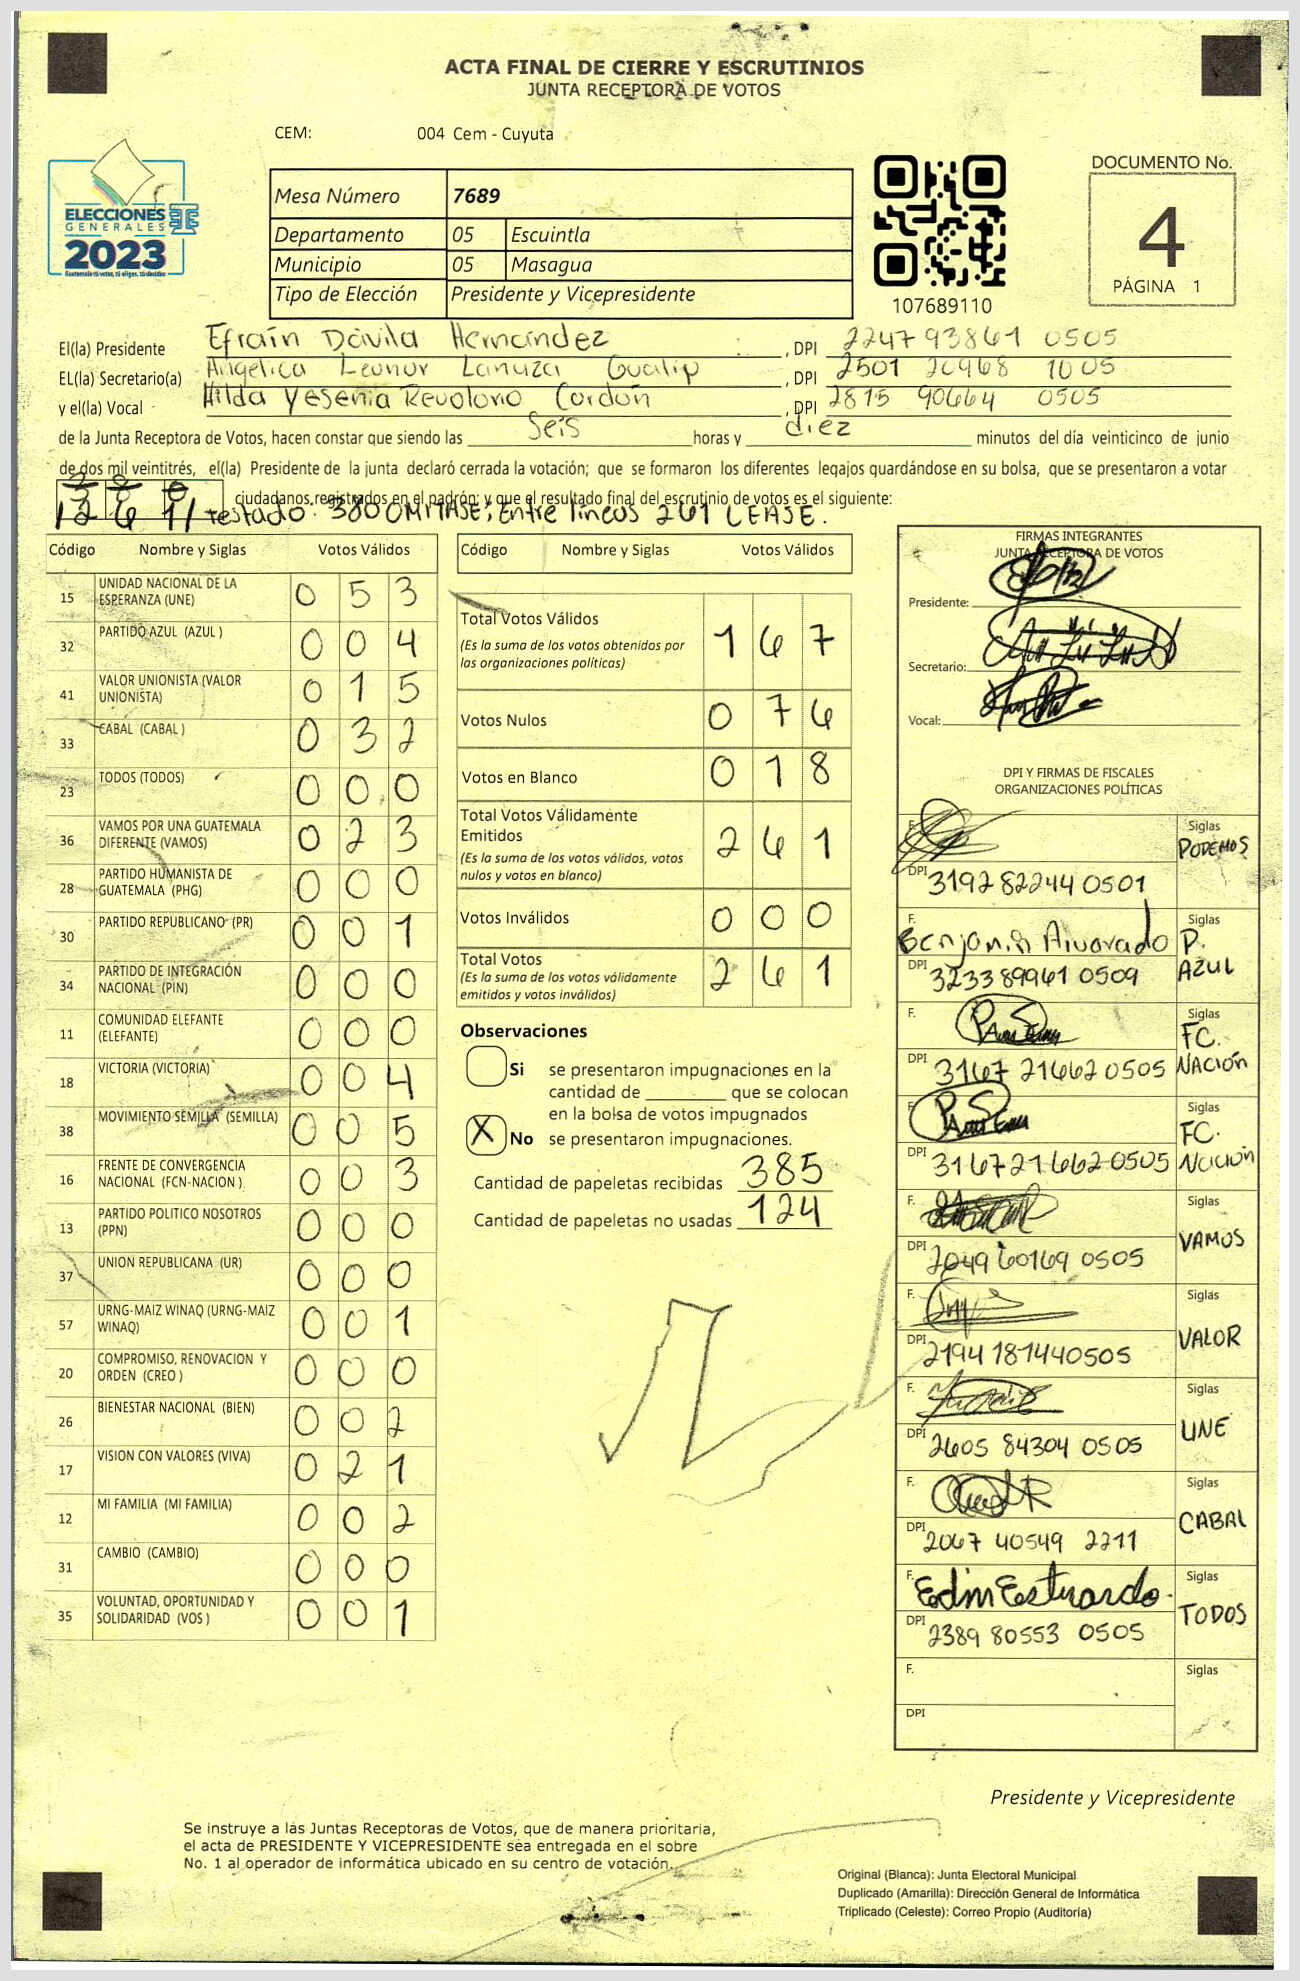 ACTA FINAL DE CIERRE Y ESCRUTINIOS
JUNTA RECEPTORA DE VOTOS
CEM: 004 Cem - Cuyuta
ELECCIONES
GENERALES
2023
Mesa Número 7689
Departamento 05 Escuintla
Municipio 05 Masagua
Tipo de Elección Presidente y Vicepresidente
107689110
DOCUMENTO No.
4
PÁGINA 1
El(la) Presidente Efraín Dávila Hernández , DPI 2247 93861 0505
EL(la) Secretario(a) Angelica Leonor Lanuza Gualip , DPI 2501 20968 1005
y el(la) Vocal Hilda Yesenia Revolorio Cordón , DPI 2815 90664 0505
de la Junta Receptora de Votos, hacen constar que siendo las Seis horas y diez minutos del día veinticinco de junio
de dos mil veintitrés, el(la) Presidente de la junta declaró cerrada la votación; que se formaron los diferentes legajos guardándose en su bolsa, que se presentaron a votar
ciudadanos registrados en el padrón; y que el resultado final del escrutinio de votos es el siguiente:
261 testado: 380 OMITASE; Entre líneas 261 LEASE.
Código Nombre y Siglas Votos Válidos
15 UNIDAD NACIONAL DE LA ESPERANZA (UNE) 0 5 3
32 PARTIDO AZUL (AZUL ) 0 0 4
41 VALOR UNIONISTA (VALOR UNIONISTA) 0 1 5
33 CABAL (CABAL ) 0 3 2
23 TODOS (TODOS) 0 0 0
36 VAMOS POR UNA GUATEMALA DIFERENTE (VAMOS) 0 2 3
28 PARTIDO HUMANISTA DE GUATEMALA (PHG) 0 0 0
30 PARTIDO REPUBLICANO (PR) 0 0 1
34 PARTIDO DE INTEGRACIÓN NACIONAL (PIN) 0 0 0
11 COMUNIDAD ELEFANTE (ELEFANTE) 0 0 0
18 VICTORIA (VICTORIA) 0 0 4
38 MOVIMIENTO SEMILLA (SEMILLA) 0 0 5
16 FRENTE DE CONVERGENCIA NACIONAL (FCN-NACION ) 0 0 3
13 PARTIDO POLITICO NOSOTROS (PPN) 0 0 0
37 UNION REPUBLICANA (UR) 0 0 0
57 URNG-MAIZ WINAQ (URNG-MAIZ WINAQ) 0 0 1
20 COMPROMISO, RENOVACION Y ORDEN (CREO ) 0 0 0
26 BIENESTAR NACIONAL (BIEN) 0 0 2
17 VISION CON VALORES (VIVA) 0 2 1
12 MI FAMILIA (MI FAMILIA) 0 0 2
31 CAMBIO (CAMBIO) 0 0 0
35 VOLUNTAD, OPORTUNIDAD Y SOLIDARIDAD (VOS ) 0 0 1
Código Nombre y Siglas Votos Válidos
Total Votos Válidos 1 6 7
(Es la suma de los votos obtenidos por
las organizaciones políticas)
Votos Nulos 0 7 6
Votos en Blanco 0 1 8
Total Votos Válidamente
Emitidos 2 6 1
(Es la suma de los votos válidos, votos
nulos y votos en blanco)
Votos Inválidos 0 0 0
Total Votos 2 6 1
(Es la suma de los votos válidamente
emitidos y votos inválidos)
Observaciones
Si se presentaron impugnaciones en la
cantidad de ________ que se colocan
en la bolsa de votos impugnados
X No se presentaron impugnaciones.
Cantidad de papeletas recibidas 385
Cantidad de papeletas no usadas 124
FIRMAS INTEGRANTES
JUNTA RECEPTORA DE VOTOS
Presidente:
Secretario:
Vocal:
DPI Y FIRMAS DE FISCALES
ORGANIZACIONES POLÍTICAS
F. Siglas PODEMOS
DPI 3192 82244 0501
F. Benjamin Alvarado Siglas P. AZUL
DPI 3233 89961 0509
F. Siglas FC. NACIÓN
DPI 3167 21662 0505
F. Siglas FC. NACIÓN
DPI 3167 21662 0505
F. Siglas VAMOS
DPI 2049 60169 0505
F. Siglas VALOR
DPI 2194 18144 0505
F. Siglas UNE
DPI 2605 84304 0505
F. Siglas CABAL
DPI 2067 40549 2211
F. Edin Estuardo. Siglas TODOS
DPI 2389 80553 0505
F. Siglas
DPI
Presidente y Vicepresidente
Se instruye a las Juntas Receptoras de Votos, que de manera prioritaria,
el acta de PRESIDENTE Y VICEPRESIDENTE sea entregada en el sobre
No. 1 al operador de informática ubicado en su centro de votación.
Original (Blanca): Junta Electoral Municipal
Duplicado (Amarilla): Dirección General de Informática
Triplicado (Celeste): Correo Propio (Auditoría)